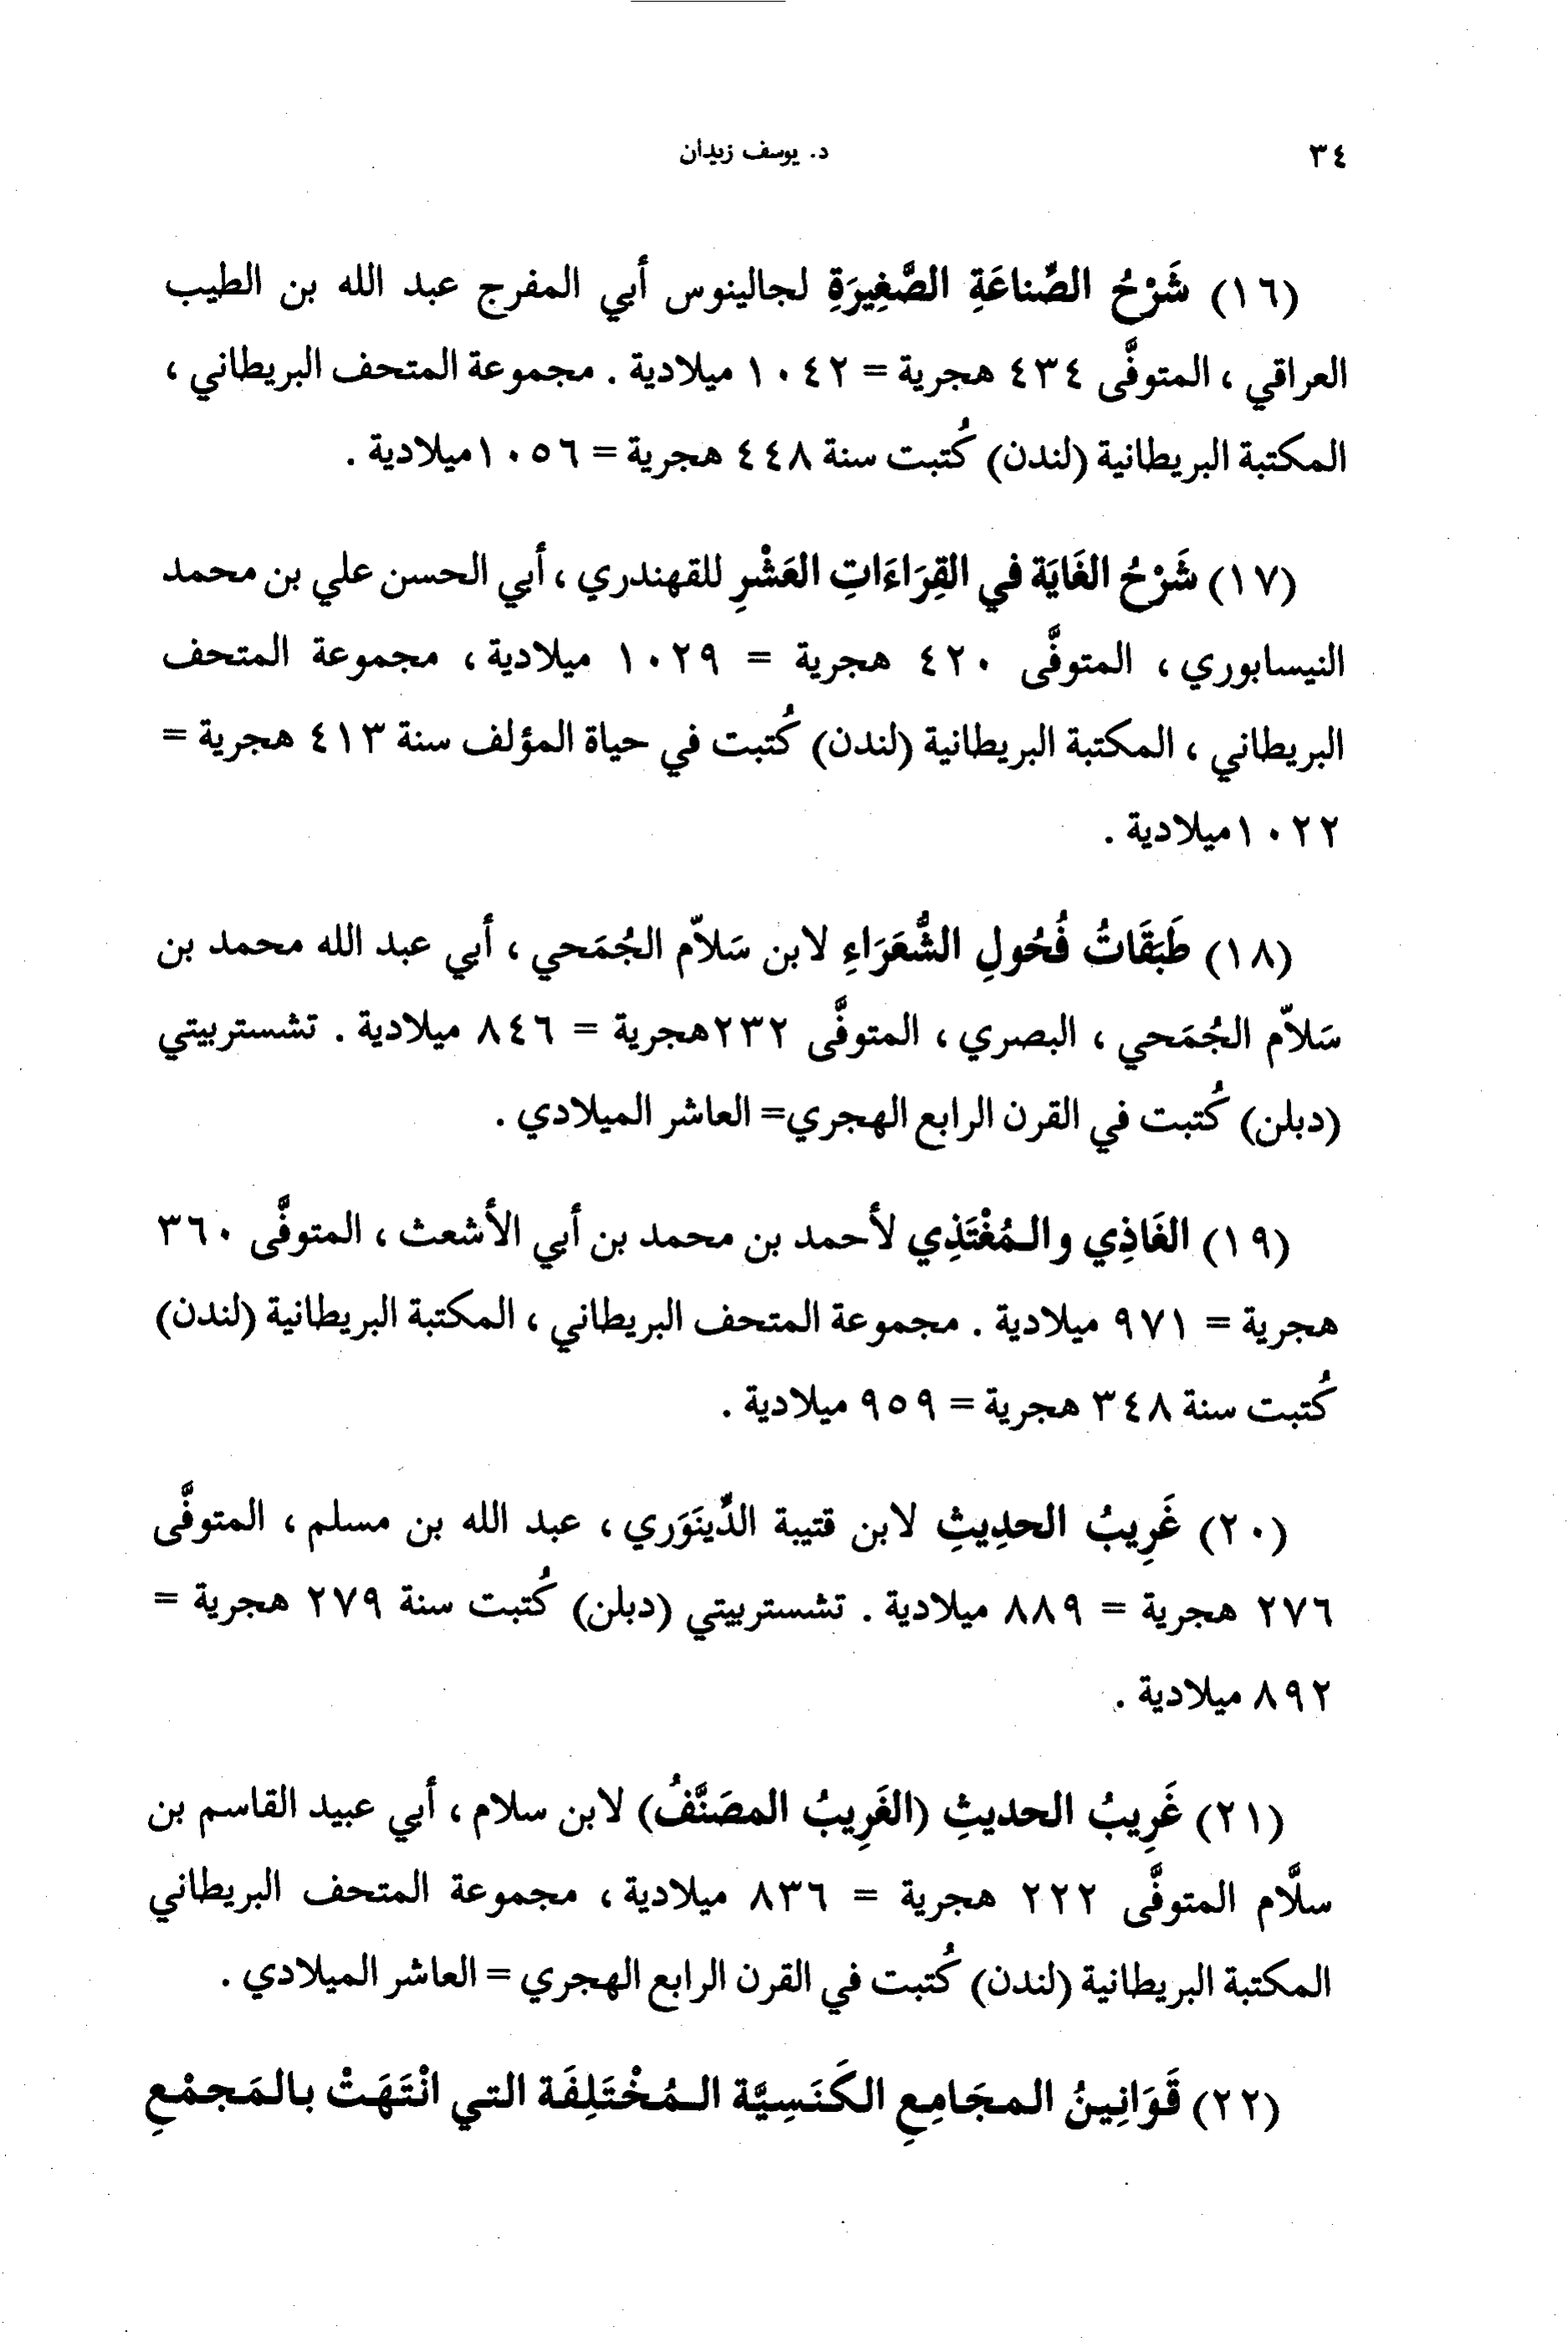 ٣٤
د. يوسف زيدان
(١٦) شَرْحُ الصِّناعَةِ الصَّغِيرَةِ لجالينوس أبي المفرج عبد الله بن الطيب
العراقي ، المتوفَّى ٤٣٤ هجرية = ١٠٤٢ ميلادية . مجموعة المتحف البريطاني ،
المكتبة البريطانية (لندن) كُتبت سنة ٤٤٨ هجرية = ١٠٥٦ميلادية .
(١٧) شَرْحُ الغَايَة في القِرَاءَاتِ العَشْرِ للقهندري ، أبي الحسن علي بن محمد
النيسابوري ، المتوفَّى ٤٢٠ هجرية = ١٠٢٩ ميلادية ، مجموعة المتحف
البريطاني ، المكتبة البريطانية (لندن) كُتبت في حياة المؤلف سنة ٤١٣ هجرية =
١٠٢٢ميلادية .
(١٨) طَبَقَاتُ فُحُولِ الشُّعَرَاءِ لابن سَلاّم الجُمَحي ، أبي عبد الله محمد بن
سَلاّم الجُمَحي ، البصري ، المتوفَّى ٢٣٢هجرية = ٨٤٦ ميلادية . تشستربيتي
(دبلن) كُتبت في القرن الرابع الهجري= العاشر الميلادي .
(١٩) الغَاذِي والـمُغْتَذِي لأحمد بن محمد بن أبي الأشعث ، المتوفَّى ٣٦٠
هجرية = ٩٧١ ميلادية . مجموعة المتحف البريطاني ، المكتبة البريطانية (لندن)
كُتبت سنة ٣٤٨ هجرية = ٩٥٩ ميلادية .
(٢٠) غَرِيبُ الحدِيثِ لابن قتيبة الدِّينَوَري ، عبد الله بن مسلم ، المتوفَّى
٢٧٦ هجرية = ٨٨٩ ميلادية . تشستربيتي (دبلن) كُتبت سنة ٢٧٩ هجرية =
٨٩٢ ميلادية .
(٢١) غَرِيبُ الحديثِ (الغَرِيبُ المصَنَّفُ) لابن سلام ، أبي عبيد القاسم بن
سلَّام المتوفَّى ٢٢٢ هجرية = ٨٣٦ ميلادية ، مجموعة المتحف البريطاني
المكتبة البريطانية (لندن) كُتبت في القرن الرابع الهجري = العاشر الميلادي .
(٢٢) قَوَانِينُ المجَامِعِ الكَنَسِيَّة الـمُخْتَلِفَة التي انْتَهَتْ بالمَجمْعِ